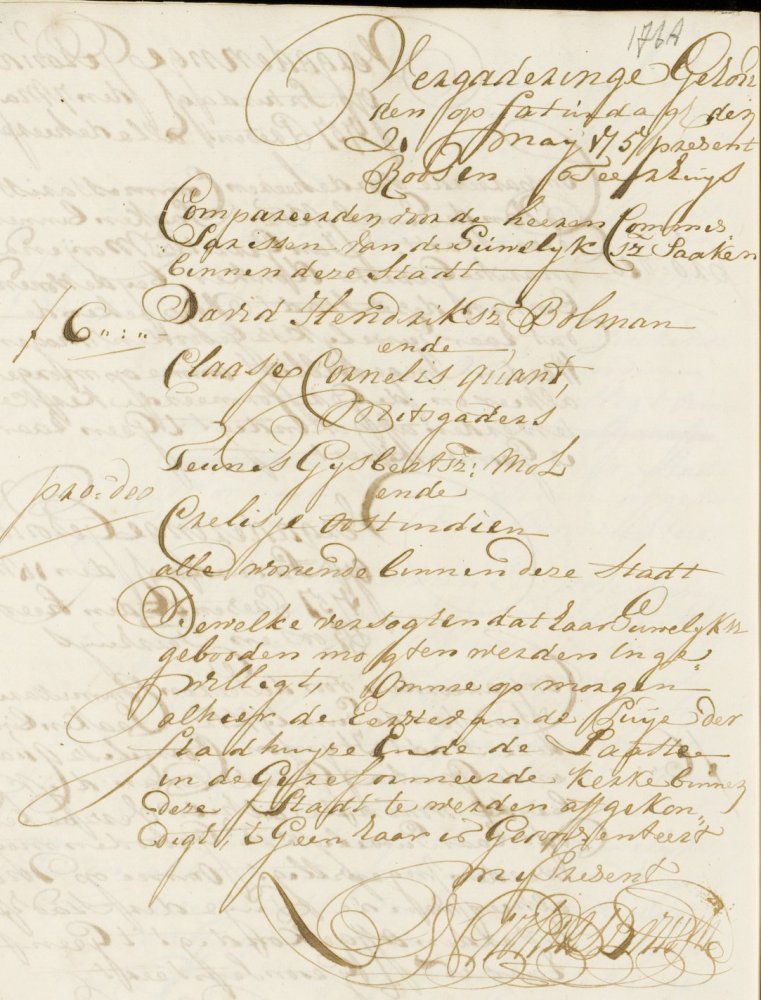 176A
Vergaderinge Gehou
den op Saturdagh den
2. May 175 present
Roosen Teerhuijs
Compareerden voor de heeren Commis
sarissen van de Huwelyksz Saaken
binnen deze Stadt
ƒ 6 " : " - David Hendriksz Bolman
ende
Claasje Cornelis Quant,
Mitsgaders
Teunis Gysbertsz: Mol
pro: deo ende
Crelisje Oostindien
alle wonende binnen deze Stadt
Dewelke versogten dat haar Huwelyksz
gebooden mogten werden Inge
willigt, Omme op morgen
alhier de Eerste van de Puije der
Stadhuyse Ende de Laaste
in de Gereformeerde Kerke binnen
deze Stadt te werden afgekon„
digt, 't Geen haar is Geconsenteert
My Present